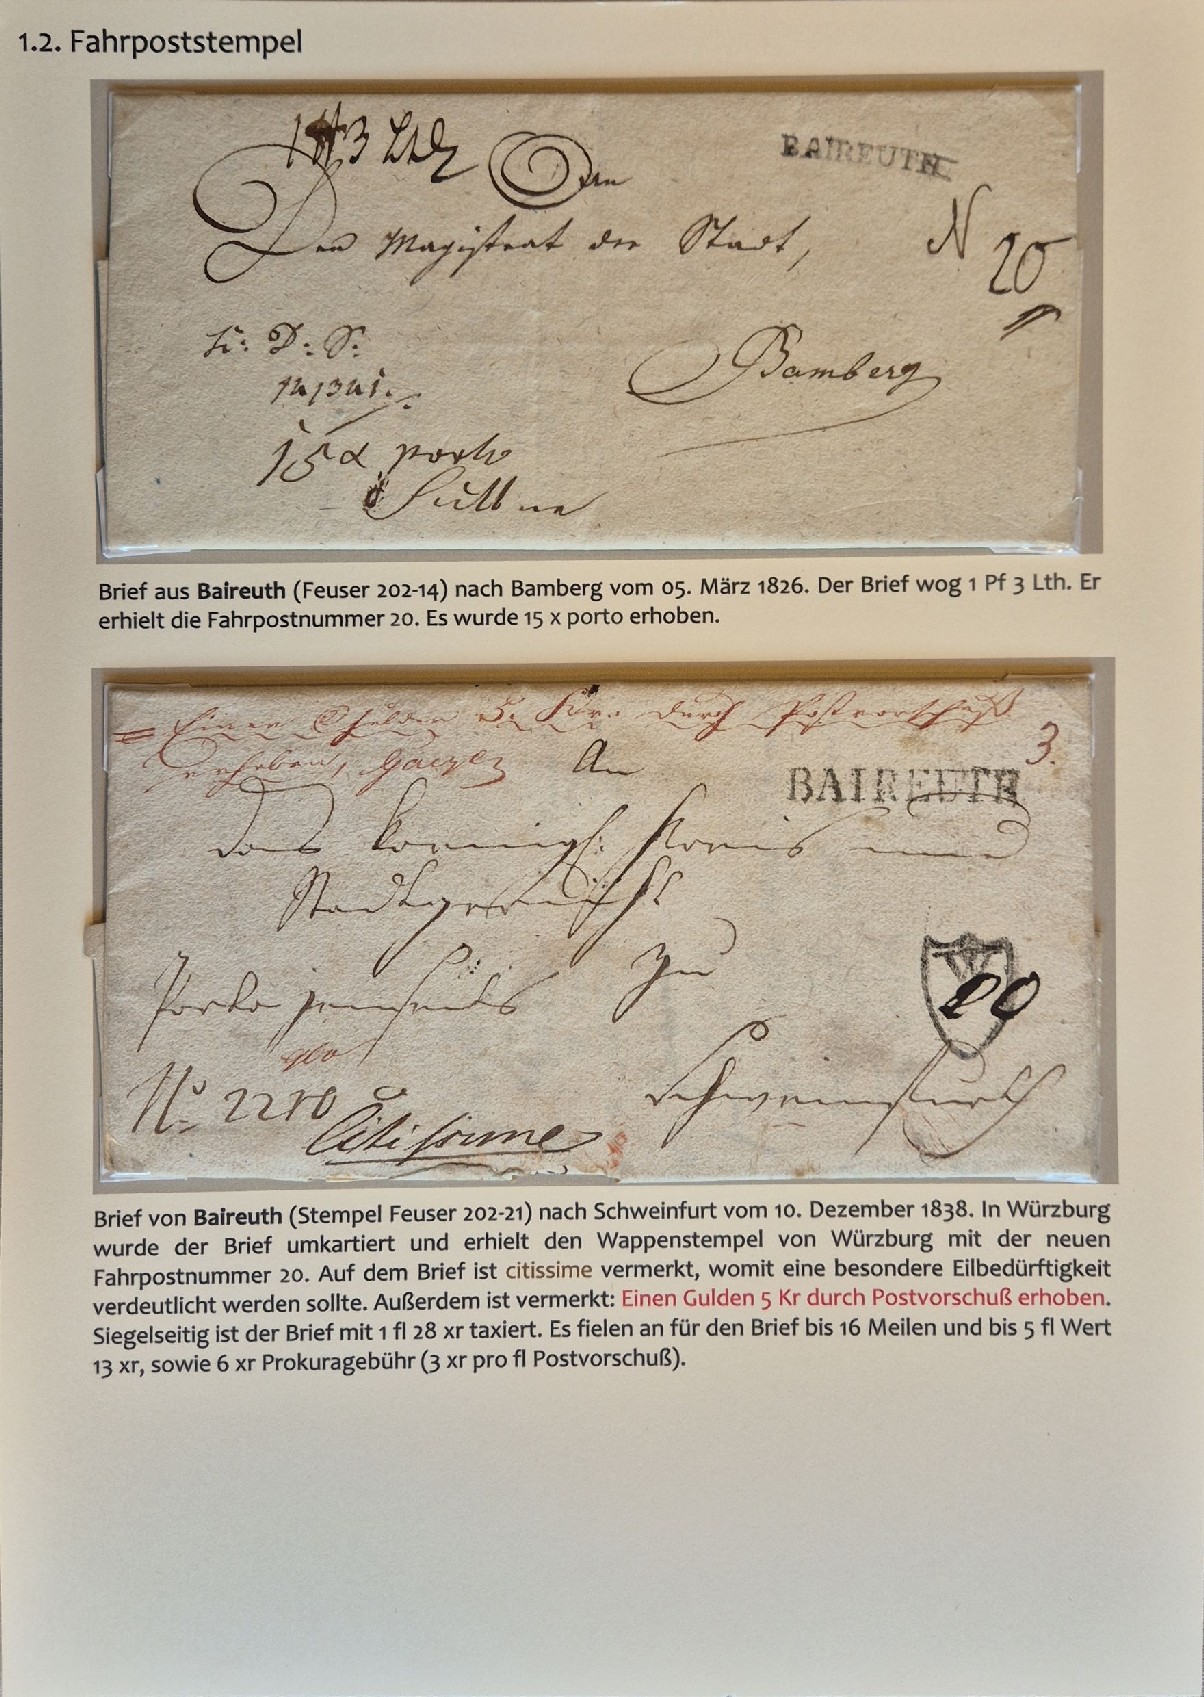 1.2. Fahrpoststempel
BAIREUTH
Magistrat der Stadt,
N 20
Bamberg
15 x porto
Brief aus Baireuth (Feuser 202-14) nach Bamberg vom 05. März 1826. Der Brief wog 1 Pf 3 Lth. Er
erhielt die Fahrpostnummer 20. Es wurde 15 x porto erhoben.
Einen Gulden 5 Kr. durch Postvorschuß
3.
erhoben,
An
BAIREUTH
das königl: Kreis und
Stadtgericht
zu
W
20
Porto jenseits
Schweinfurth
No 2210
Citissime
Brief von Baireuth (Stempel Feuser 202-21) nach Schweinfurt vom 10. Dezember 1838. In Würzburg
wurde der Brief umkartiert und erhielt den Wappenstempel von Würzburg mit der neuen
Fahrpostnummer 20. Auf dem Brief ist citissime vermerkt, womit eine besondere Eilbedürftigkeit
verdeutlicht werden sollte. Außerdem ist vermerkt: Einen Gulden 5 Kr durch Postvorschuß erhoben.
Siegelseitig ist der Brief mit 1 fl 28 xr taxiert. Es fielen an für den Brief bis 16 Meilen und bis 5 fl Wert
13 xr, sowie 6 xr Prokuragebühr (3 xr pro fl Postvorschuß).